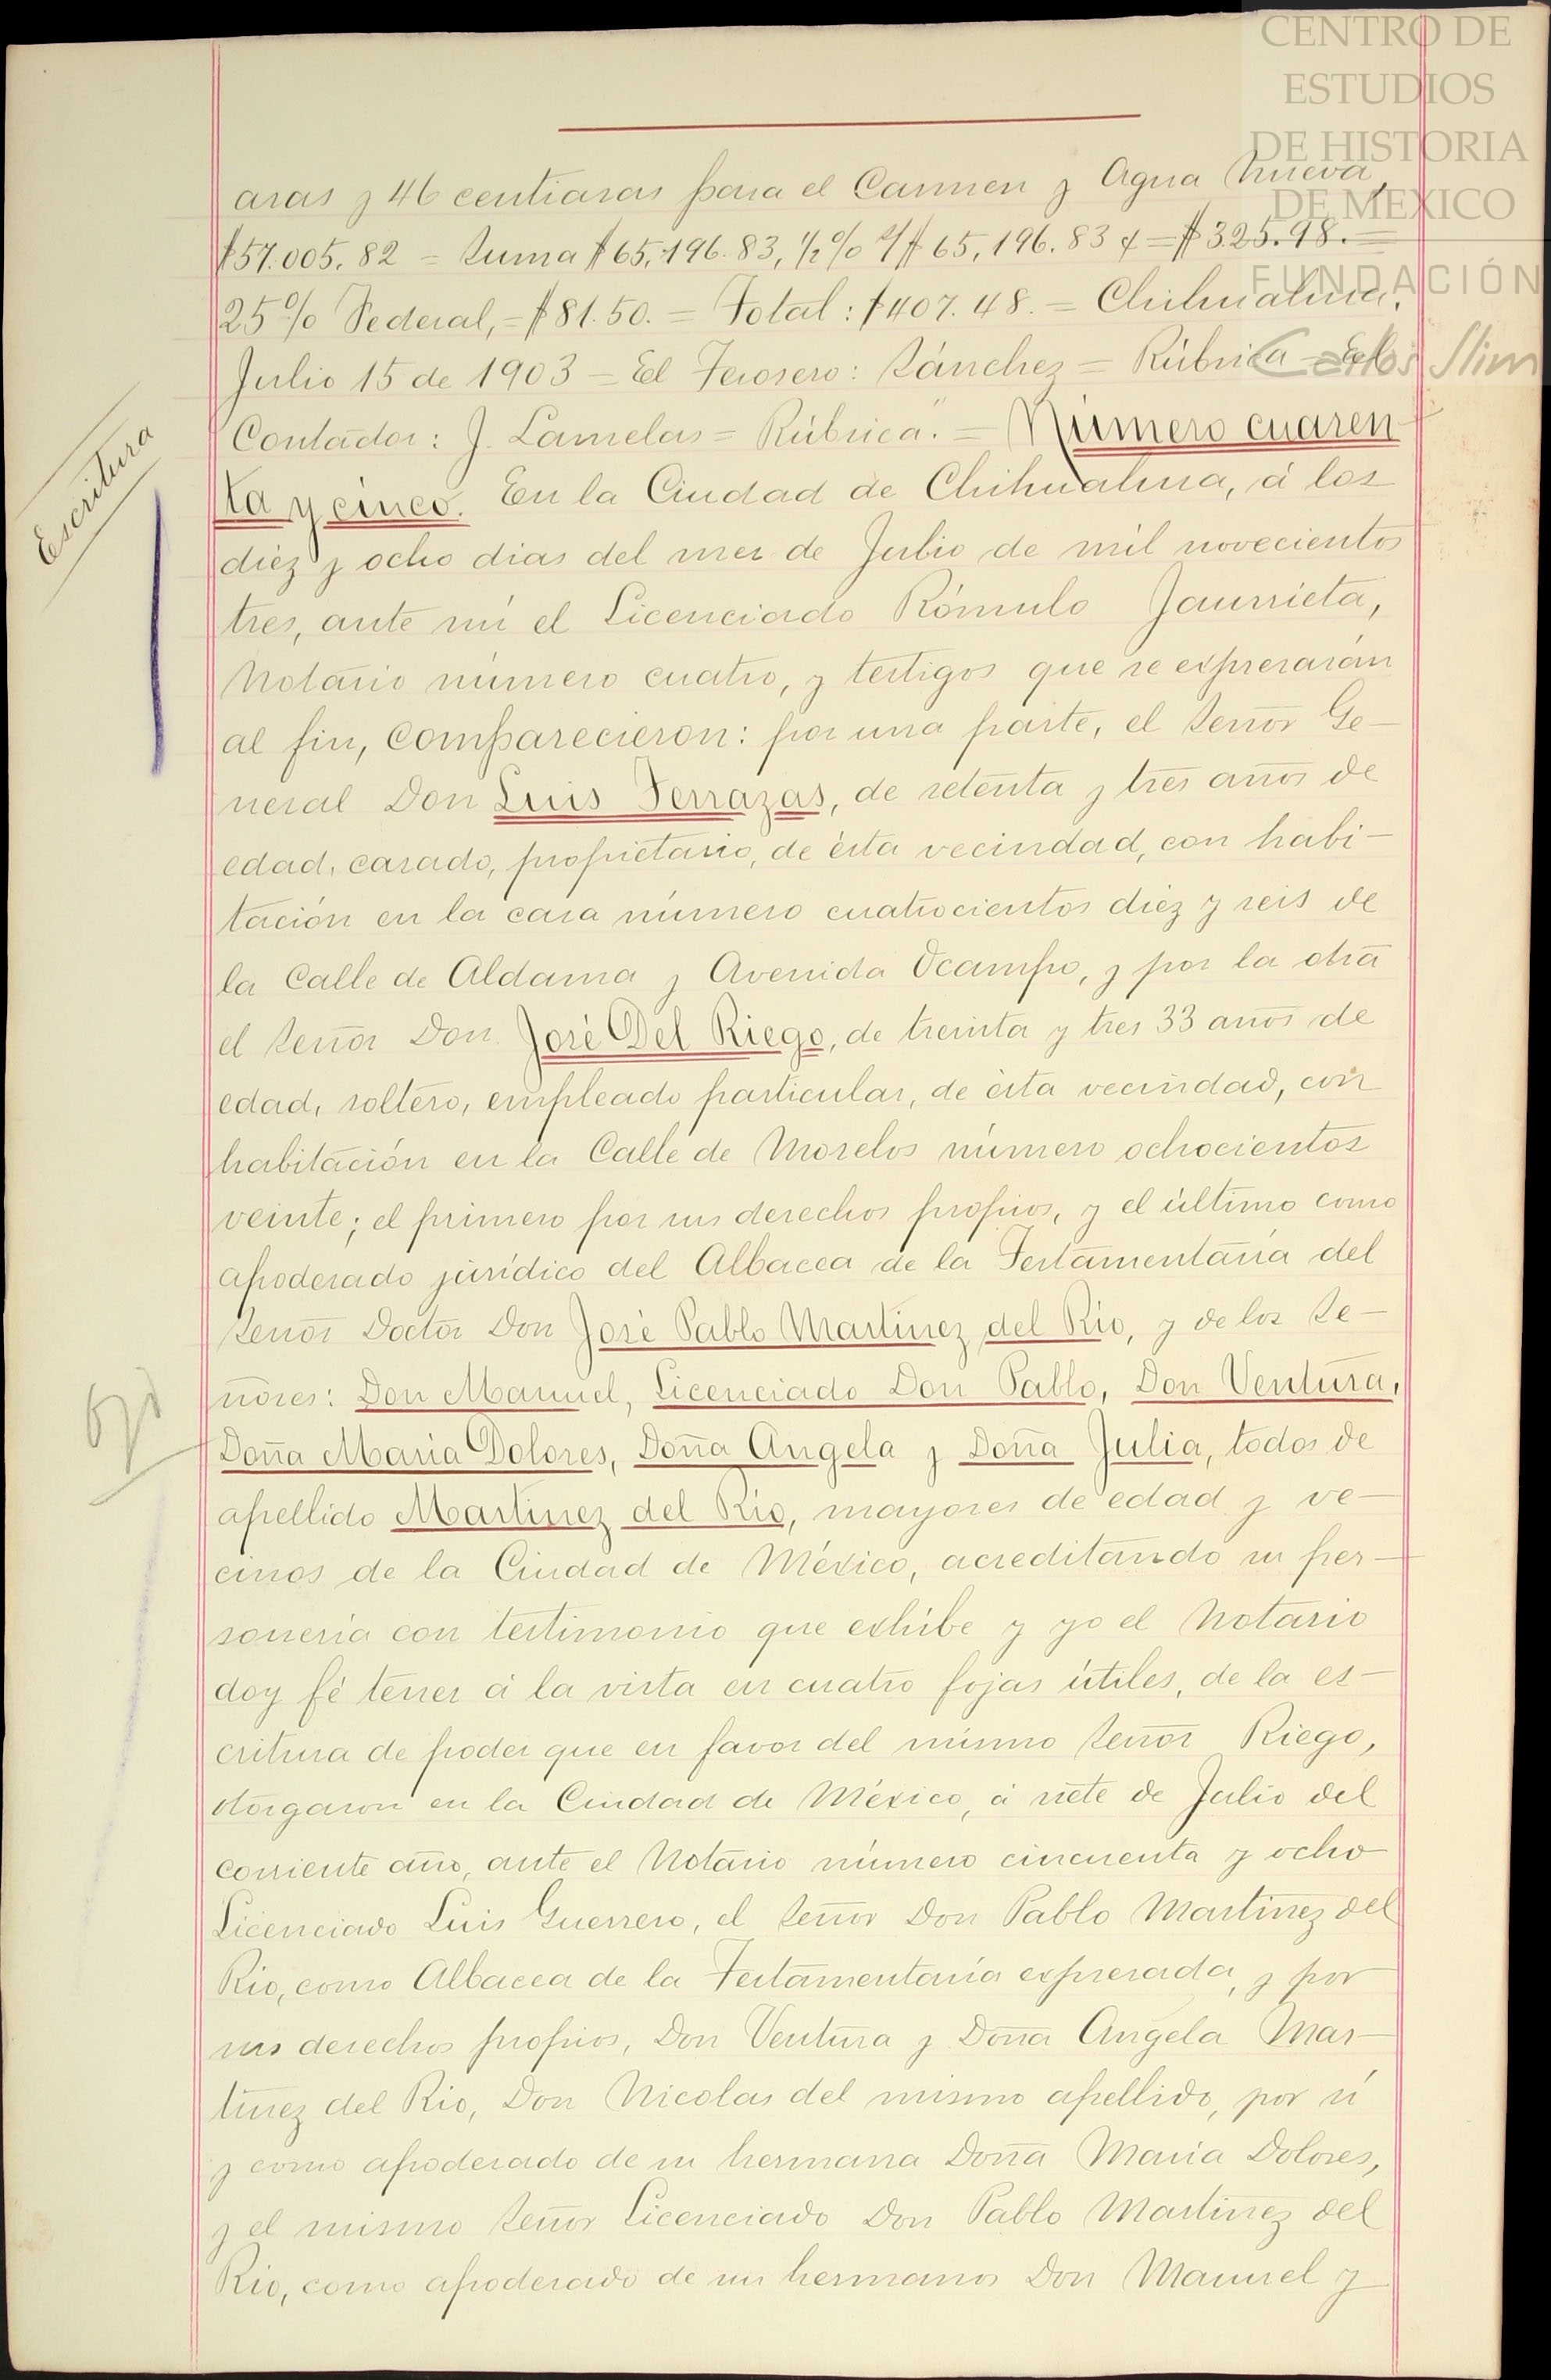 CENTRO DE
ESTUDIOS
DE HISTORIA
DE MEXICO
FUNDACIÓN
Carlos Slim
aras y 46 centiaras para el Carmen y Agua Nueva,
$57.005.82 = Suma $65,196.83, ½% s/$65,196.83 = $325.98. =
25% Federal, = $81.50. = Total: $407.48. = Chihuahua,
Julio 15 de 1903 = El Tesorero: Sánchez = Rúbrica = El
Contador: J. Lamelas = Rúbrica." = Número cuaren-
ta y cinco. En la Ciudad de Chihuahua, á los
Escritura
diez y ocho dias del mes de Julio de mil novecientos
tres, ante mí el Licenciado Rómulo Jaurrieta,
Notario número cuatro, y testigos que se expresarán
al fin, comparecieron: por una parte, el Señor Ge-
neral Don Luis Terrazas, de setenta y tres años de
edad, casado, propietario, de ésta vecindad, con habi-
tación en la casa número cuatrocientos diez y seis de
la Calle de Aldama y Avenida Ocampo, y por la otra
el Señor Don José Del Riego, de treinta y tres 33 años de
edad, soltero, empleado particular, de ésta vecindad, con
habitación en la Calle de Morelos número ochocientos
veinte; el primero por sus derechos propios, y el último como
apoderado jurídico del Albacea de la Testamentaría del
Señor Doctor Don José Pablo Martinez del Rio, y de los Se-
ñores: Don Manuel, Licenciado Don Pablo, Don Ventura,
Doña Maria Dolores, Doña Angela y Doña Julia, todos de
apellido Martinez del Rio, mayores de edad y ve-
cinos de la Ciudad de México, acreditando su per-
sonería con testimonio que exhibe y yo el Notario
doy fé tener á la vista en cuatro fojas útiles, de la es-
critura de poder que en favor del mismo Señor Riego,
otorgaron en la Ciudad de México, á siete de Julio del
corriente año, ante el Notario número cincuenta y ocho
Licenciado Luis Guerrero, el Señor Don Pablo Martinez del
Rio, como Albacea de la Testamentaría expresada, y por
sus derechos propios, Don Ventura y Doña Angela Mar-
tinez del Rio, Don Nicolas del mismo apellido, por sí
y como apoderado de su hermana Doña Maria Dolores,
y el mismo Señor Licenciado Don Pablo Martinez del
Rio, como apoderado de sus hermanos Don Manuel y